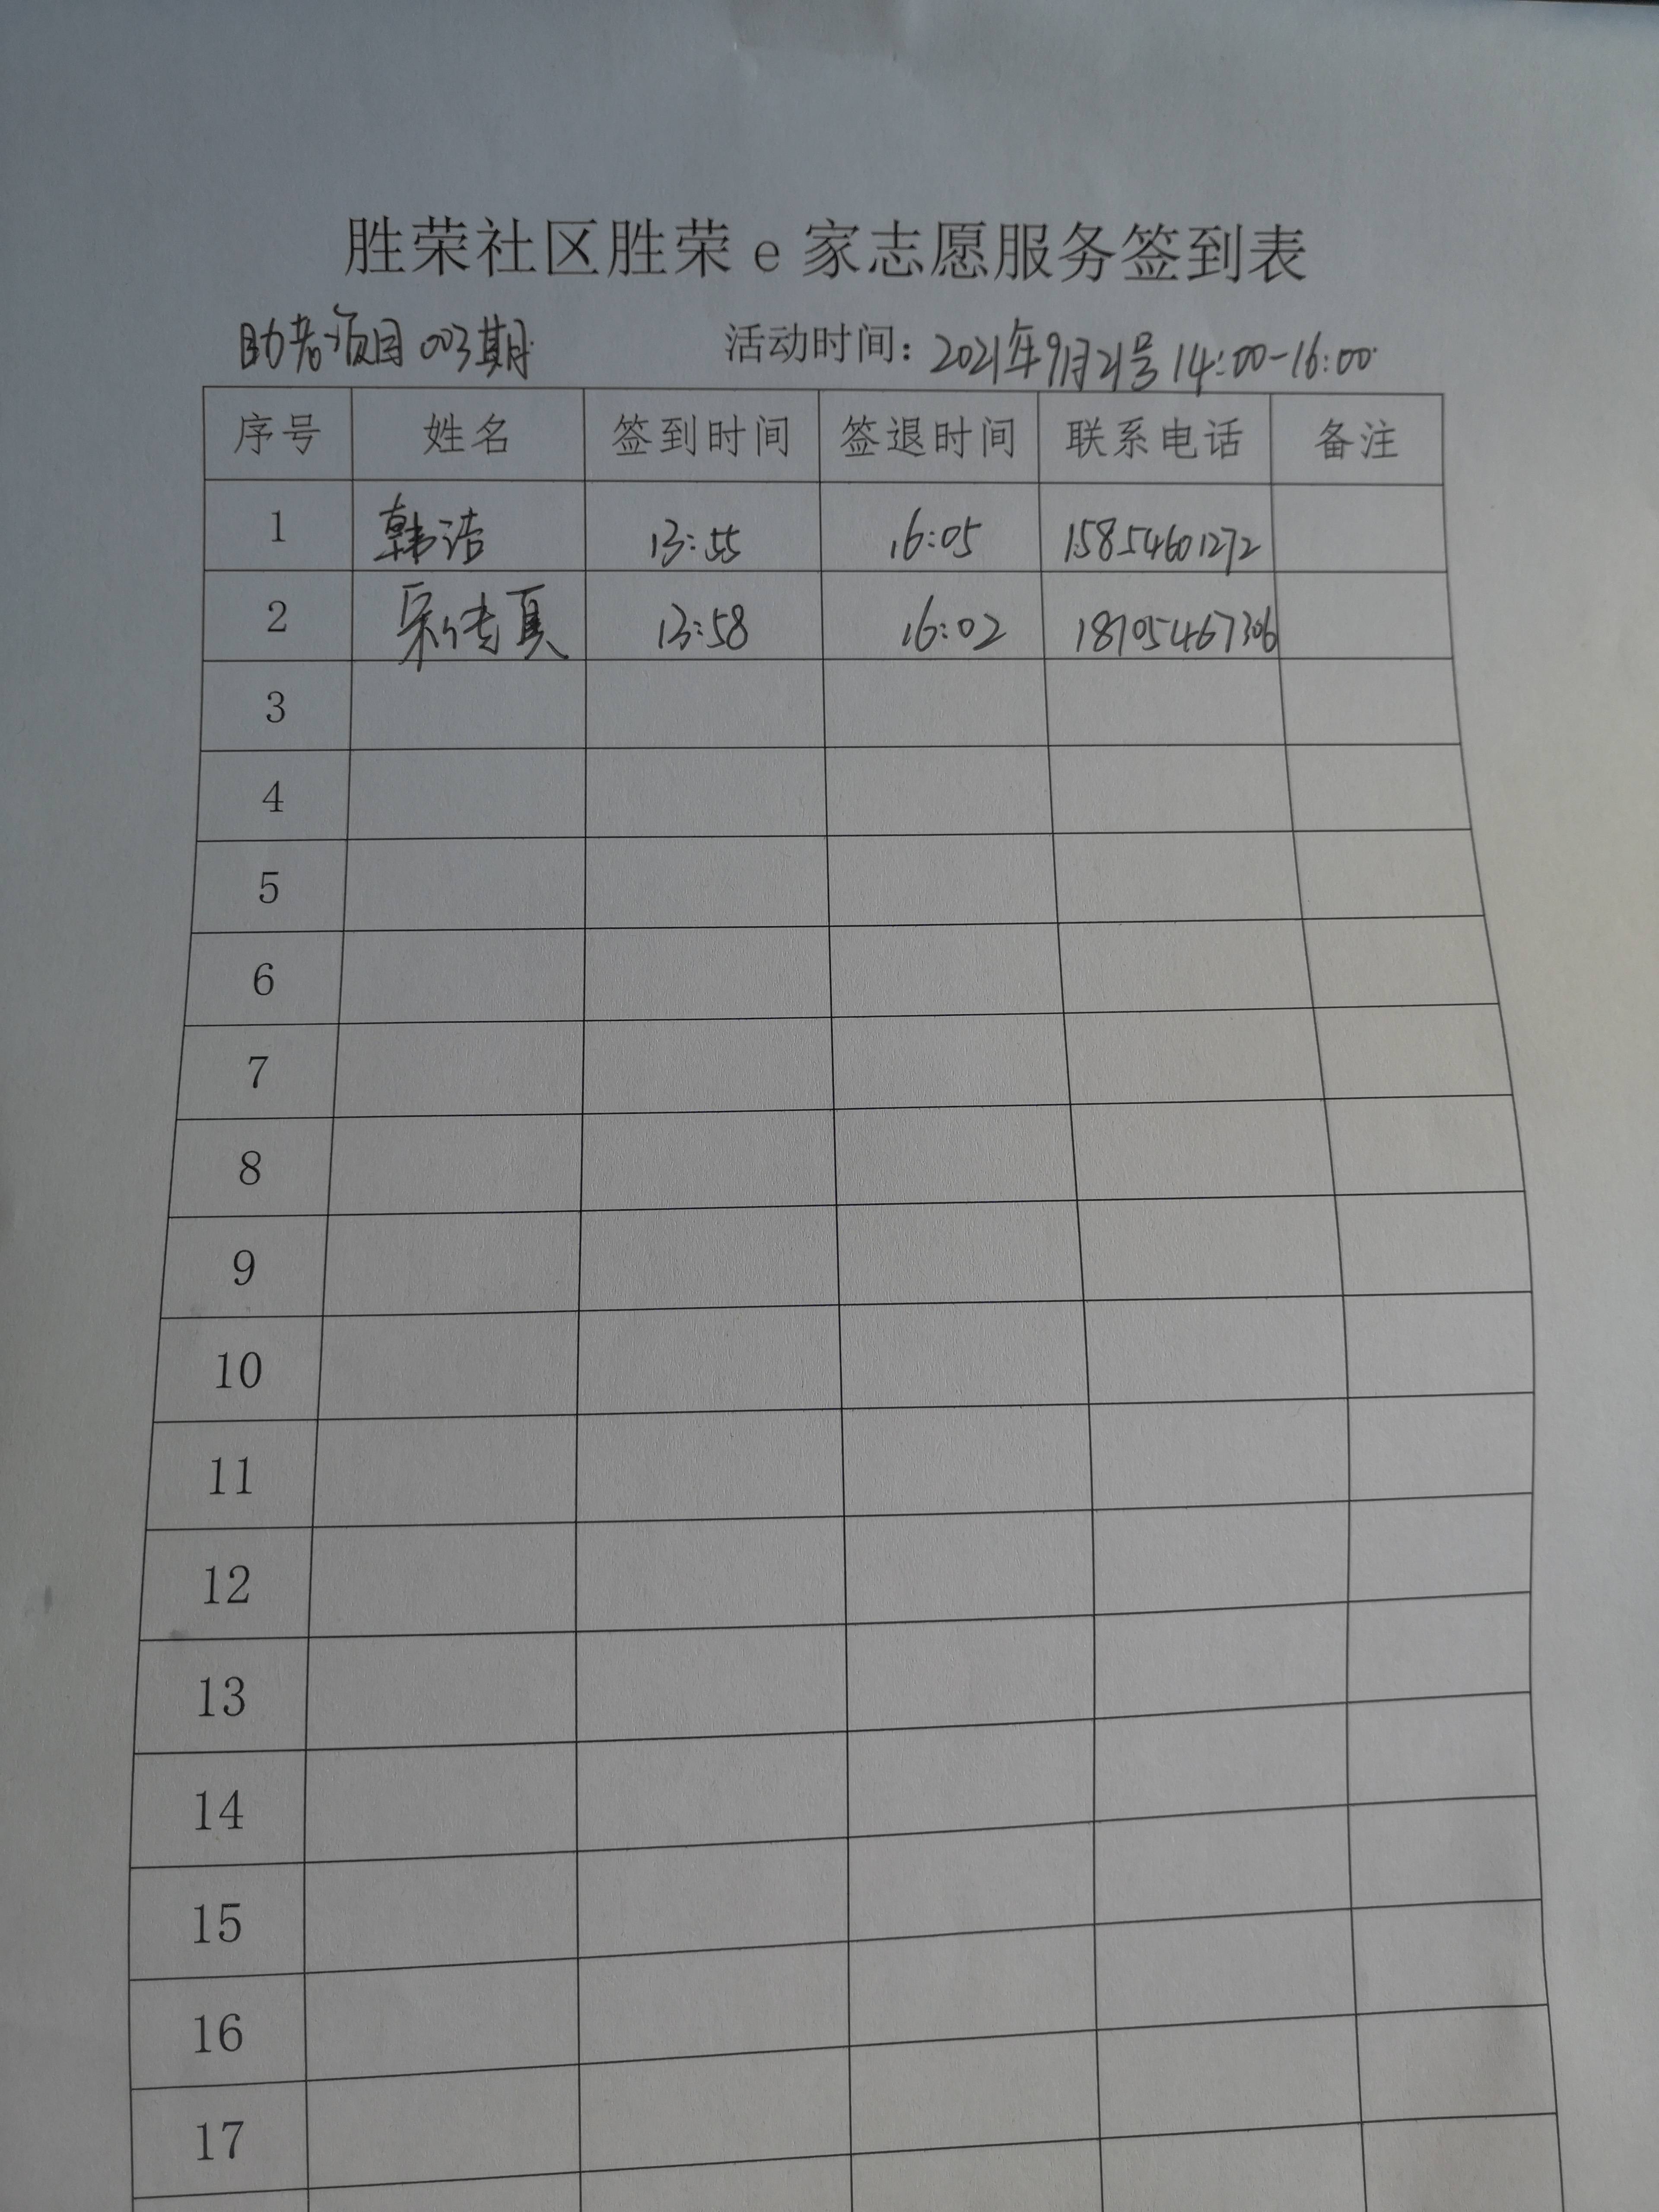 胜荣社区胜荣e家志愿服务签到表
助老项目003期 活动时间：2021年9月21号14:00-16:00
序号 姓名 签到时间 签退时间 联系电话 备注
1 韩洁 13:55 16:05 15854601272
2 宋传真 13:58 16:02 18705467306
3
4
5
6
7
8
9
10
11
12
13
14
15
16
17